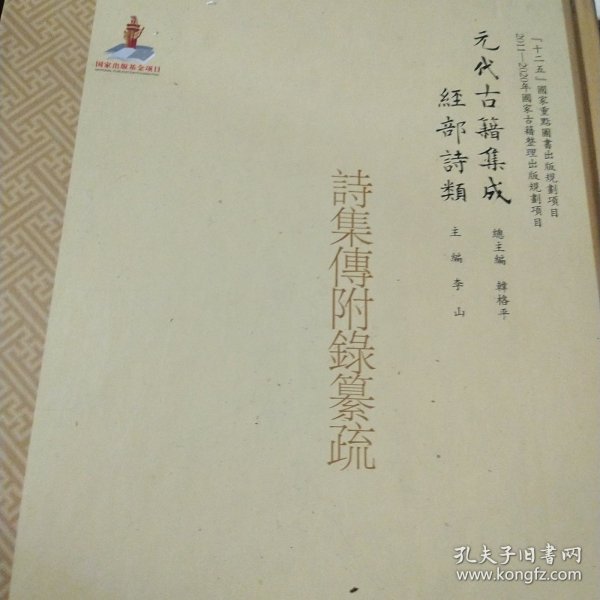 「十二五」國家重點圖書出版規劃項目
2011—2020年國家古籍整理出版規劃項目
元代古籍集成
經部詩類
總主編 韓格平
主編 李山
詩集傳附錄纂疏
国家出版基金项目
孔夫子旧书网
www.kongfz.com